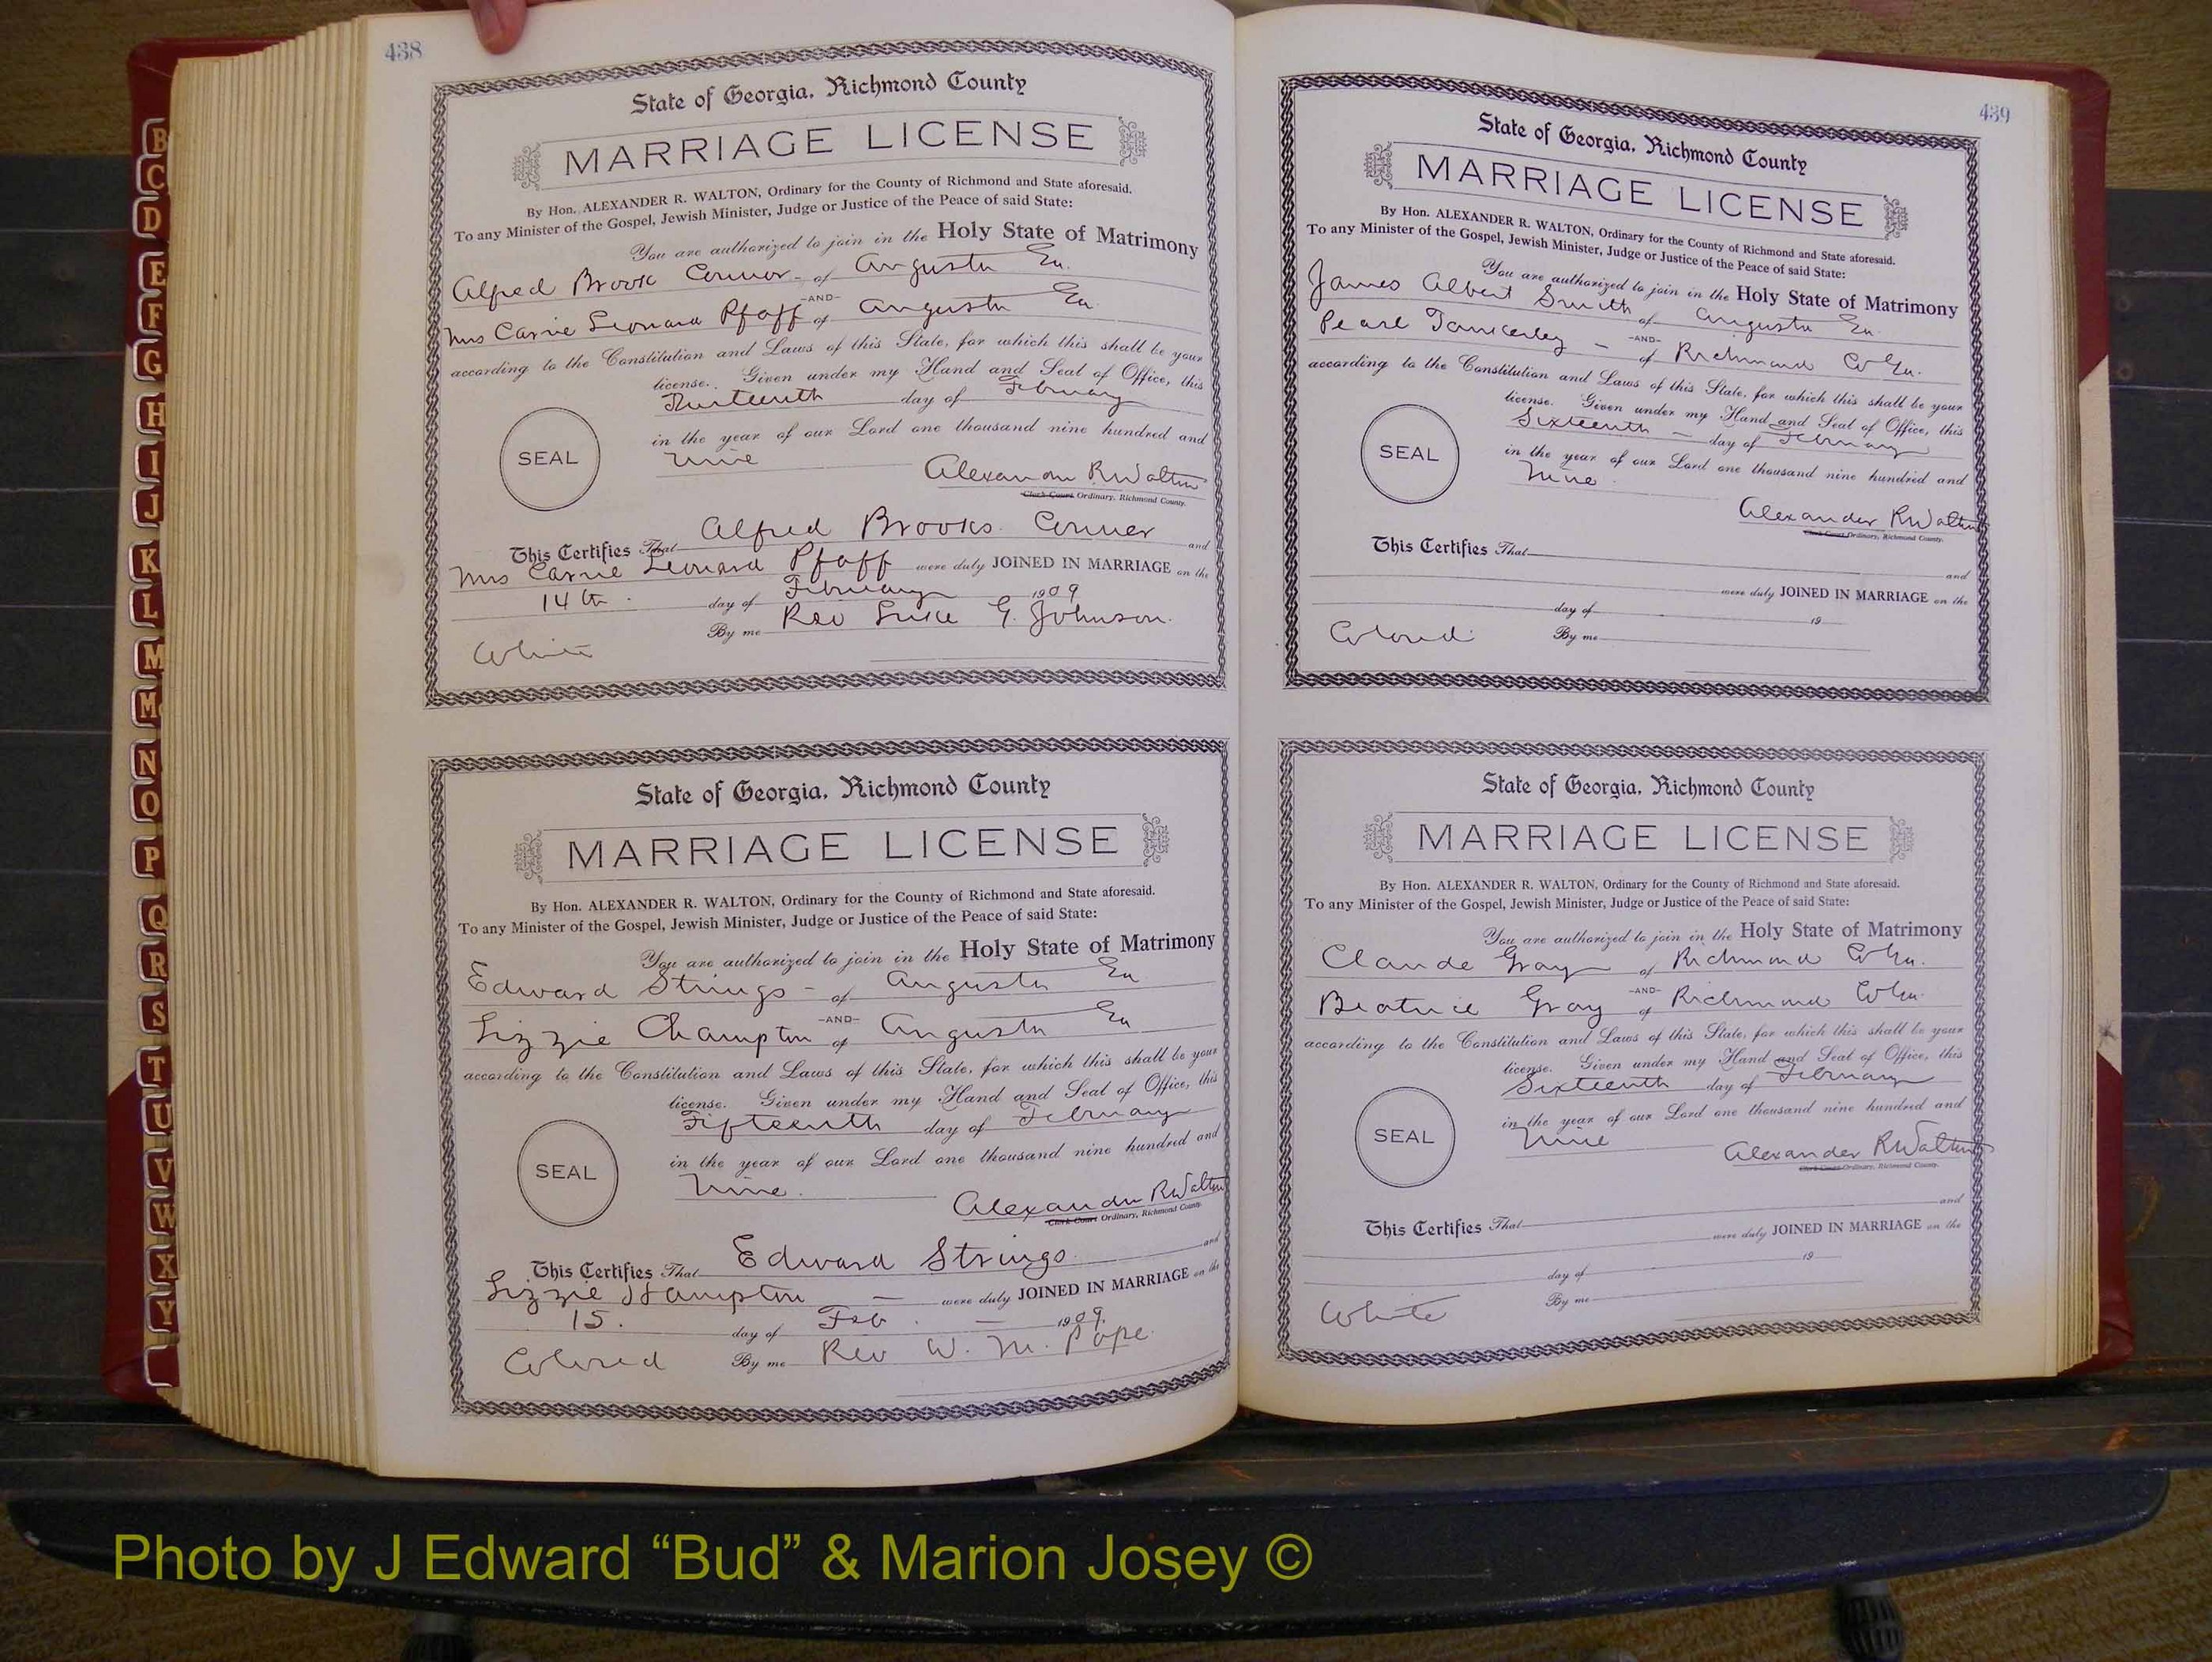 438
State of Georgia, Richmond County
MARRIAGE LICENSE
By Hon. ALEXANDER R. WALTON, Ordinary for the County of Richmond and State aforesaid.
To any Minister of the Gospel, Jewish Minister, Judge or Justice of the Peace of said State:
You are authorized to join in the Holy State of Matrimony
Alfred Brook Conner - of Augusta Ga.
-AND-
Mrs Carrie Leonard Pfaff of Augusta Ga
according to the Constitution and Laws of this State, for which this shall be your
license. Given under my Hand and Seal of Office, this
Thirteenth day of February
in the year of our Lord one thousand nine hundred and
nine
SEAL
Alexander R Walton
Clerk Court Ordinary, Richmond County.
This Certifies That Alfred Brooks Conner and
Mrs Carrie Leonard Pfaff were duly JOINED IN MARRIAGE on the
14th. day of February 1909
By me Rev Luke G. Johnson.
White
State of Georgia, Richmond County
MARRIAGE LICENSE
By Hon. ALEXANDER R. WALTON, Ordinary for the County of Richmond and State aforesaid.
To any Minister of the Gospel, Jewish Minister, Judge or Justice of the Peace of said State:
You are authorized to join in the Holy State of Matrimony
Edward Strings - of Augusta Ga
-AND-
Lizzie Champton of Augusta Ga
according to the Constitution and Laws of this State, for which this shall be your
license. Given under my Hand and Seal of Office, this
Fifteenth day of February
in the year of our Lord one thousand nine hundred and
nine.
SEAL
Alexander R Walton
Clerk Court Ordinary, Richmond County.
This Certifies That Edward Strings and
Lizzie Hampton - were duly JOINED IN MARRIAGE on the
15. day of Feb. - 1909.
Colored By me Rev W. M. Pope.
439
State of Georgia, Richmond County
MARRIAGE LICENSE
By Hon. ALEXANDER R. WALTON, Ordinary for the County of Richmond and State aforesaid.
To any Minister of the Gospel, Jewish Minister, Judge or Justice of the Peace of said State:
You are authorized to join in the Holy State of Matrimony
James Albert Smith of Augusta Ga.
-AND-
Pearl - of Richmond Co Ga.
according to the Constitution and Laws of this State, for which this shall be your
license. Given under my Hand and Seal of Office, this
Sixteenth - day of February
in the year of our Lord one thousand nine hundred and
nine.
SEAL
Alexander R Walton
Clerk Court Ordinary, Richmond County.
This Certifies That and
were duly JOINED IN MARRIAGE on the
day of 19
Colored By me
State of Georgia, Richmond County
MARRIAGE LICENSE
By Hon. ALEXANDER R. WALTON, Ordinary for the County of Richmond and State aforesaid.
To any Minister of the Gospel, Jewish Minister, Judge or Justice of the Peace of said State:
You are authorized to join in the Holy State of Matrimony
Claude Gray of Richmond Co Ga.
-AND-
Beatrice Gray of Richmond Co Ga.
according to the Constitution and Laws of this State, for which this shall be your
license. Given under my Hand and Seal of Office, this
Sixteenth day of February
in the year of our Lord one thousand nine hundred and
nine
SEAL
Alexander R Walton
Clerk Court Ordinary, Richmond County.
This Certifies That and
were duly JOINED IN MARRIAGE on the
day of 19
White By me
B
C
D
E
F
G
H
I
J
K
L
M
Mc
N
O
P
Q
R
S
T
U
V
W
X
Y
Photo by J Edward “Bud” & Marion Josey ©